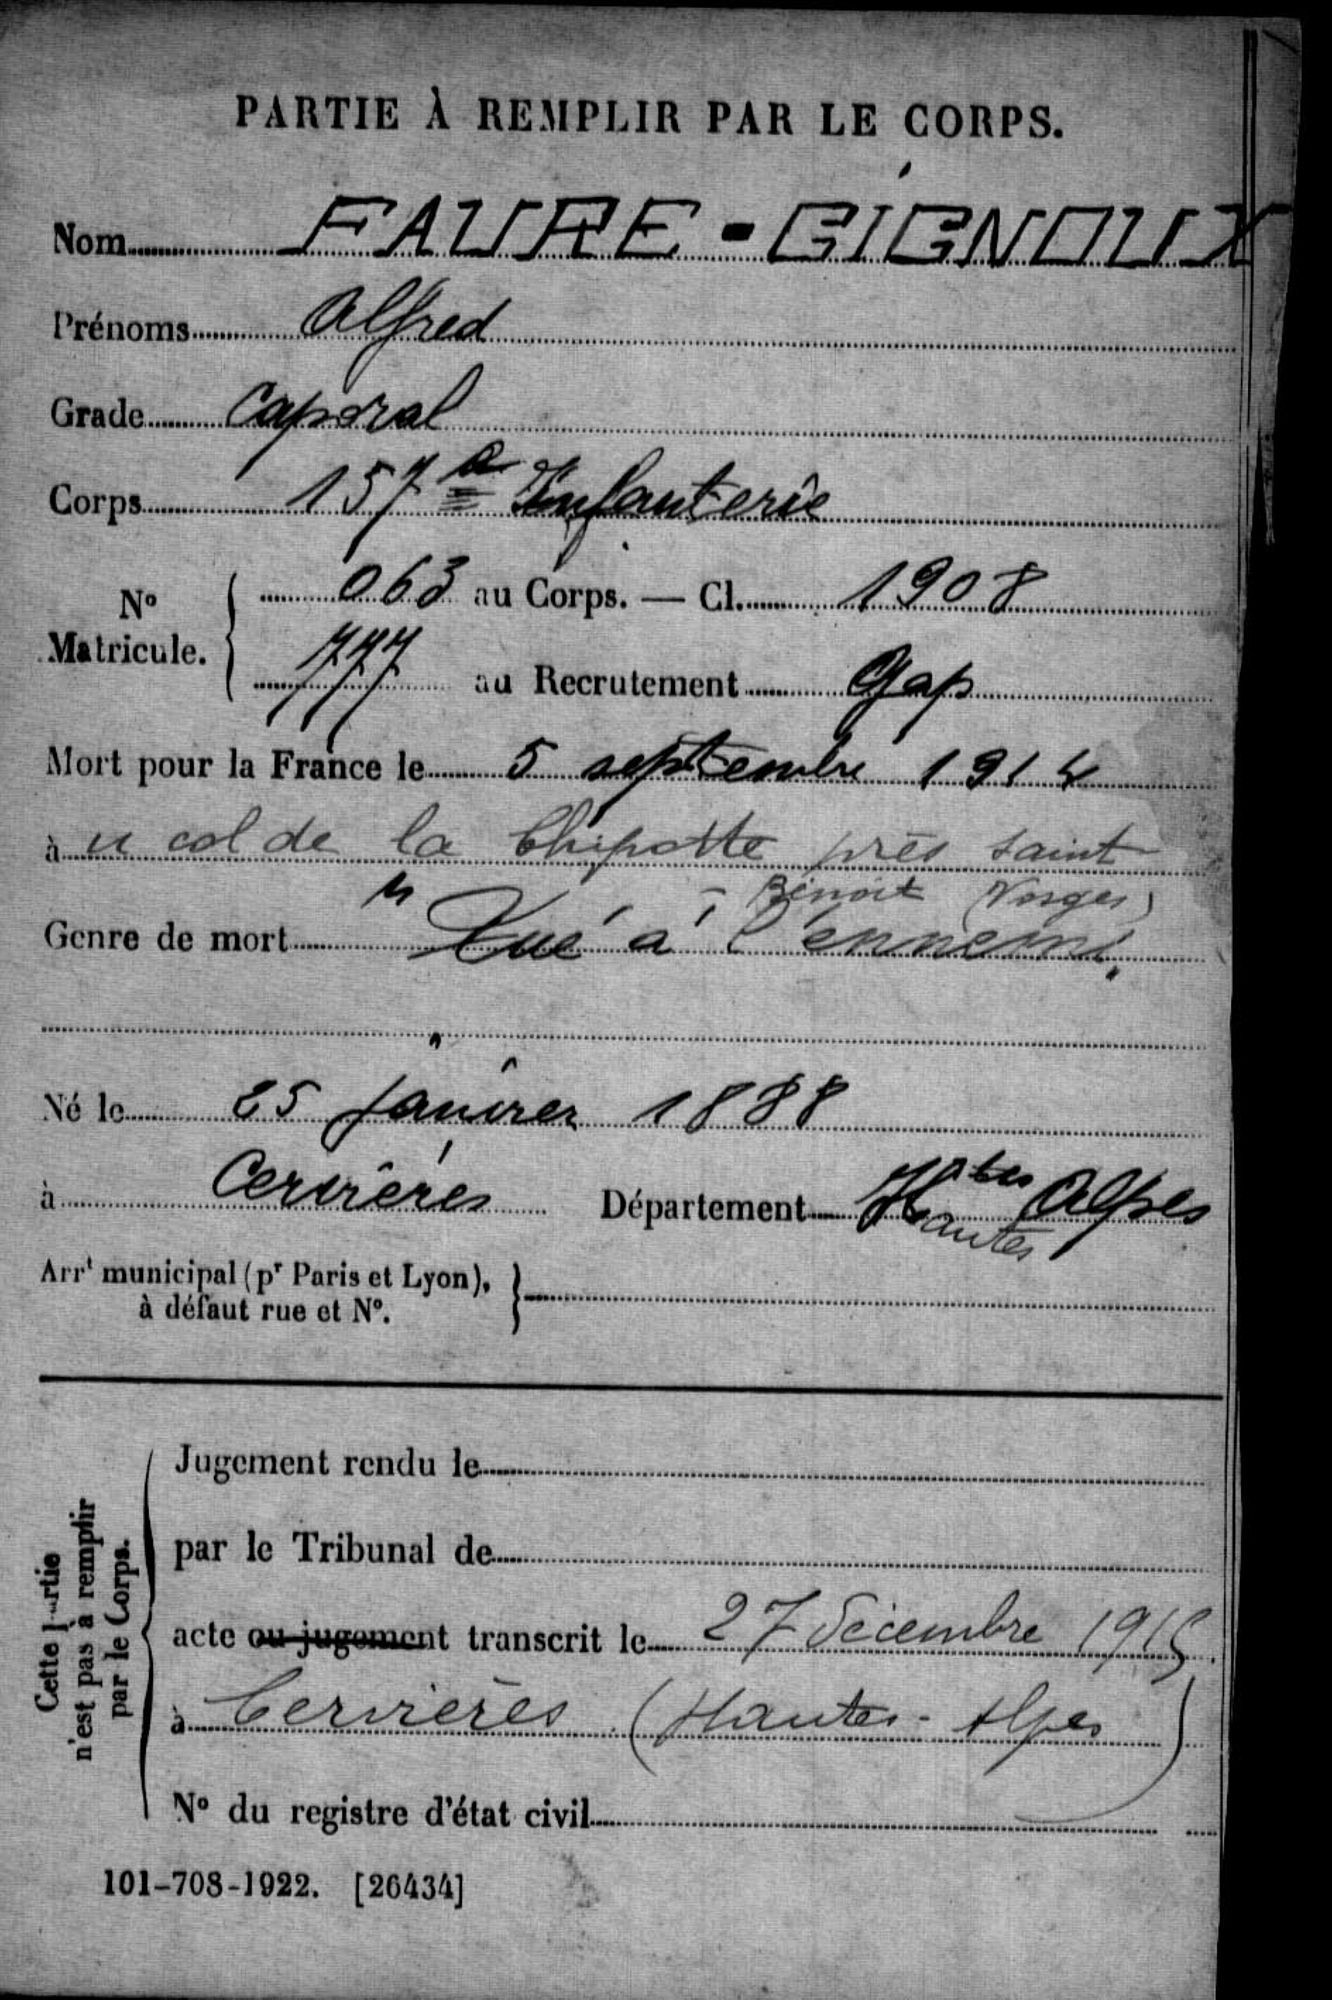 PARTIE À REMPLIR PAR LE CORPS.
Nom FAURE-GIGNOUX
Prénoms Alfred
Grade Caporal
Corps 157e Infanterie
N° Matricule. { 063 au Corps. — Cl. 1908
777 au Recrutement Gap
Mort pour la France le 5 septembre 1914
à u col de la Chipotte près Saint
- Benoit (Vosges)
Genre de mort " Tué à l'ennemi.
Né le 25 Janvier 1888
à Cervières Département Htes Alpes
Hautes
Arrt municipal (pr Paris et Lyon), }
à défaut rue et N°.
Cette partie
n'est pas à remplir
par le Corps.
Jugement rendu le
par le Tribunal de
acte ou jugement transcrit le 27 Décembre 1915
à Cervières (Hautes-Alpes)
N° du registre d'état civil
101-708-1922. [26434]